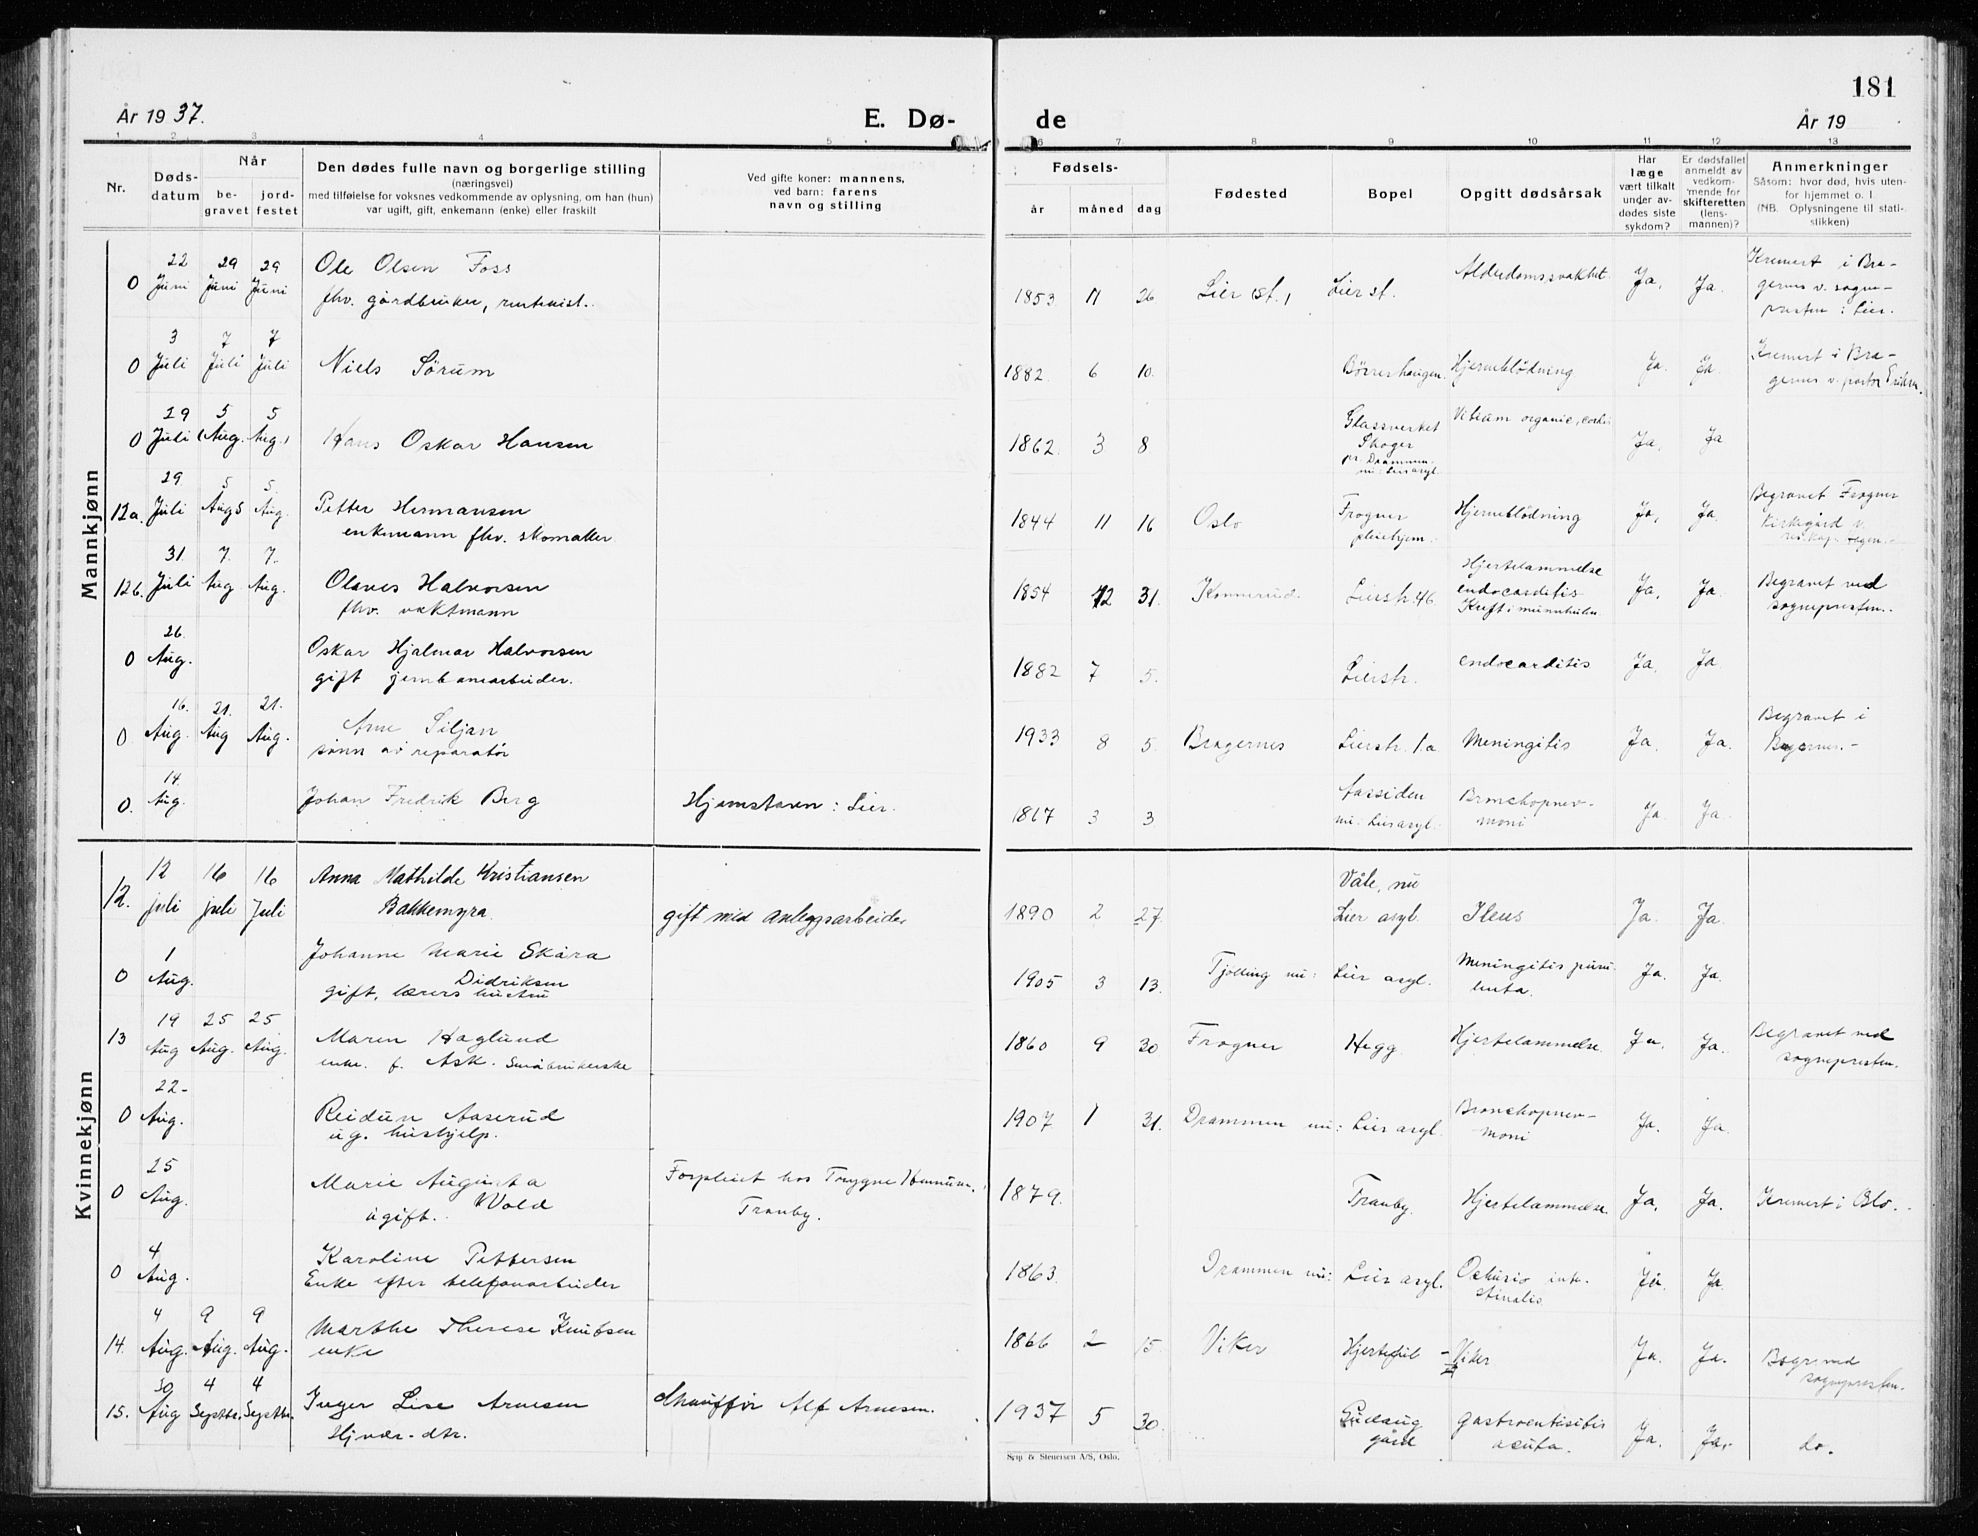 181
År 19 37.
E. Dø-
de
År 19
1 2 3 4 5 6 7 8 9 10 11 12 13
Nr.
Døds-
datum
Når
be-
gravet
jord-
festet
Den dødes fulle navn og borgerlige stilling
(næringsvei)
med tilføielse for voksnes vedkommende av oplysning, om han (hun)
var ugift, gift, enkemann (enke) eller fraskilt
Ved gifte koner: mannens,
ved barn: farens
navn og stilling
Fødsels-
år måned dag
Fødested
Bopel
Opgitt dødsårsak
Har
læge
vært tilkalt
under av-
dødes siste
sykdom?
Er dødsfallet
anmeldt av
vedkom-
mende for
skifteretten
(lens-
mannen)?
Anmerkninger
Såsom: hvor død, hvis uten-
for hjemmet o. l.
(NB. Oplysningene til stati-
stikken)
Mannkjønn
0 22 Juni 29 Juni 29 Juni
Ole Olsen Foss
fhv. gårdbruker, rentenist.
1853 11 26 Lier st., Lier st. Alderdomssvakhet Ja, Ja.
Kremert i Bra-
gernes v. sogne-
presten i Lier.
0 3 Juli 7 Juli 7 Juli
Niels Sørum
1882. 6 10. Børreshaugen. Hjerneblödning Ja. Ja.
Kremert i Bra-
gernes v. pastor Eriksen.
0 29 Juli 5 Aug. 5 Aug.
Hans Oskar Hansen
1862. 3 8.
Glassverket
Skoger
pr. Drammen.
nu: Lier asyl.
Vitium organic. cordis Ja, Ja
12a. 29 Juli 5 Aug 5. Aug.
Petter Hermansen
enkemann fhv. skomaker
1844 11 16 Oslo
Frogner
pleiehjem.
Hjerneblödning Ja, Ja.
Begravet Frogner
Kirkegård v.
12b. 31. Juli 7. Aug 7. Aug.
Olaves Halvorsen
fhv. vaktmann
1854 12 31. Konnerud. Lierstr. 46.
Hjertelammelse
endocarditis
Kreft i munnhulen.
Ja, Ja.
Begravet ved
sognepresten.
0 26. Aug.
Oskar Hjalmar Halvorsen
gift jernbanearbeider.
1882 7 5. Lierstr. endocarditis Ja, Ja
0. 16. Aug. 21. Aug 21. Aug.
Arne Siljan
sønn av reparatör
1933 8 5. Bragernes Lierstr. 1a Meningitis Ja. Ja.
Begravet i
Bragernes.-
0. 14. Aug.
Johan Fredrik Berg
Hjemstavn: Lier.
1867 3 3
Aassiden
nu: Lier asyl.
Bronchopnev-
moni
Ja. Ja.
Kvinnekjønn
12. 12 juli 16 juli 16 Juli
Anna Mathilde Kristiansen
Bakkemyra.
gift med anleggsarbeider
1890 2 27.
Våle, nu
Lier asyl.
Ileus Ja. Ja.
0 1 Aug.
Johanne Marie Skåra
Didriksen
gift, lærers hustru
1905 3 13. Tjølling nu: Lier asyl.
Meningitis puru-
lenta.
Ja. Ja.
13 19 Aug 25 Aug. 25 Aug.
Maren Haglund
enke. f. Ask. Småbrukerske
1860 9 30 Frogner Hegg. Hjertelammelse. Ja. Ja.
Begravet ved
sognepresten.
0 22- Aug.
Reidun Aaserud
ug. hushjelp.
1907 1 31. Drammen nu: Lier asyl.
Bronchopnev-
moni
Ja. Ja.
0 25 Aug.
Marie Augusta
Wold
ugift.
Forpleiet hos Trygve Hennum.
Tranby.
1879. Tranby. Hjertelammelse. Ja, Ja. Kremert i Oslo.
0 4 Aug.
Karoline Pettersen
Enke efter telefonarbeider
1863. Drammen nu: Lier asyl.
Oclusio inte-
stinalis
Ja. Ja.
14. 4 Aug. 9 Aug. 9 Aug.
Marthe Therese Knutsen
enke
1866 2 15. Viker Hjertefeil - Viker Ja. Ja.
Begr. ved
sognepresten.
15. 30 Aug 4 Septbr. 4 Septbr.
Inger Lise Arnesen
Hjvær. dtr.
Chauffør Alf Arnesen.
1937 5 30.
Gudaug
gård
gastroenteritis
acuta.
Ja. Ja. do.
Seip & Stenersen A/S, Oslo.